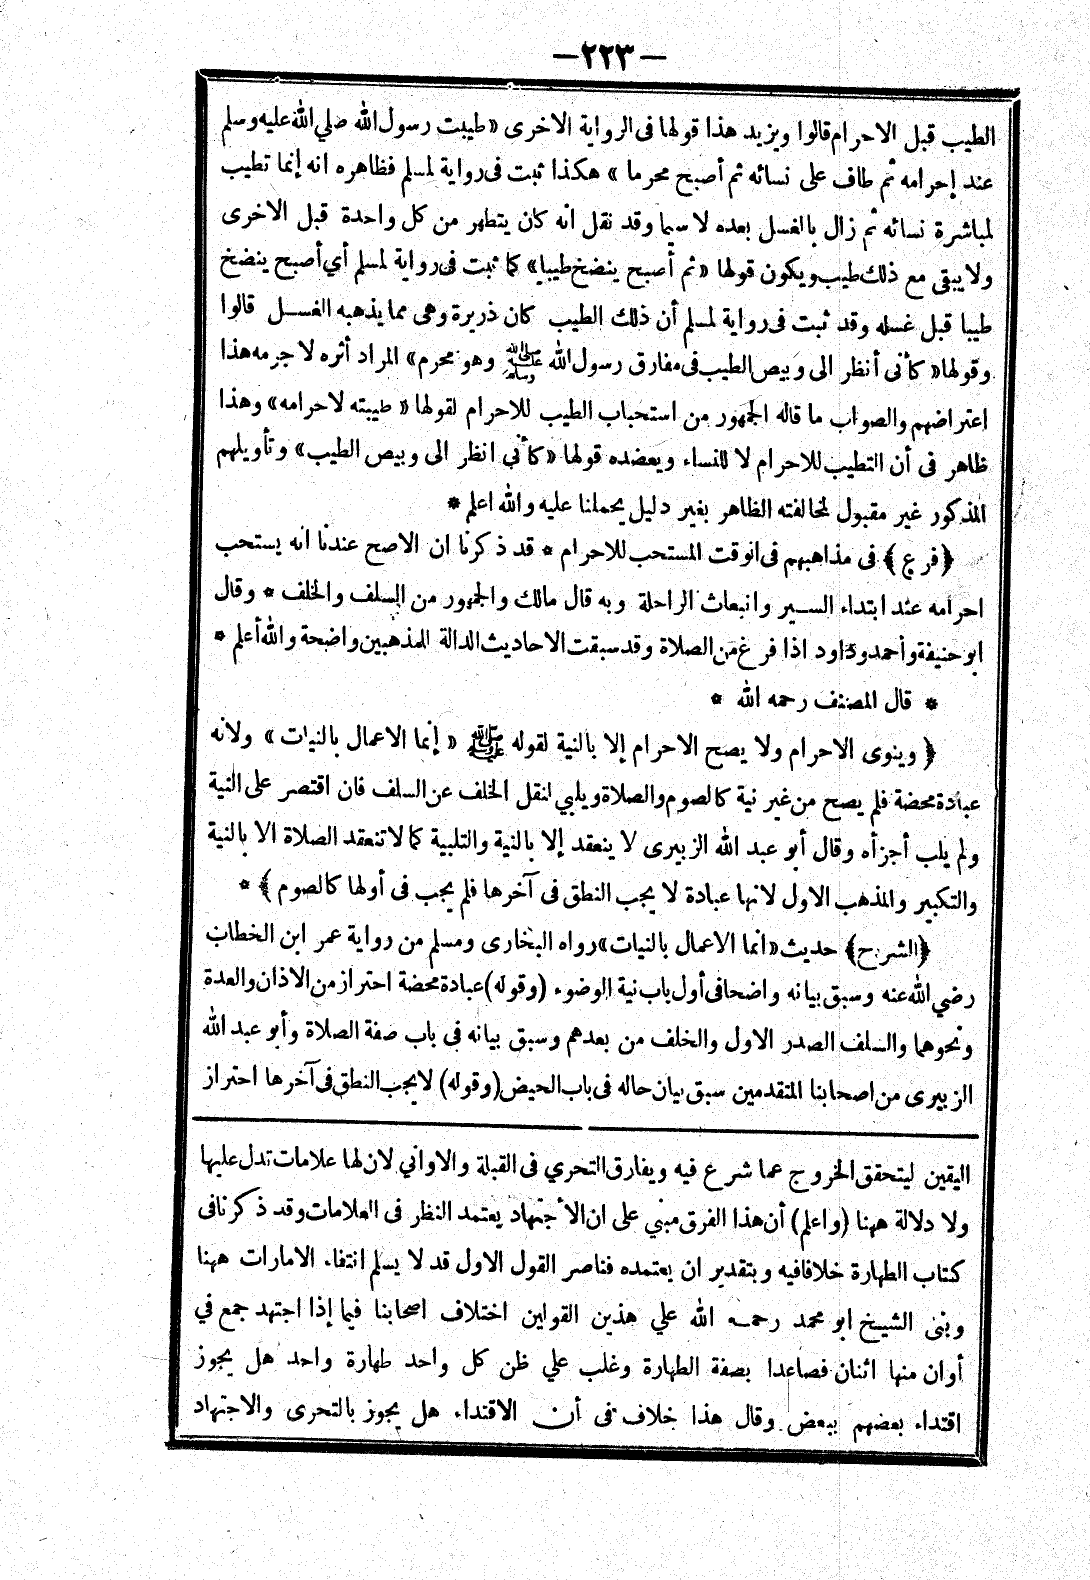 —٢٢٣—
الطيب قبل الاحرام قالوا ويزيد هذا قولها فى الرواية الاخرى «طيبت رسول الله صلي الله عليه وسلم
عند إحرامه ثم طاف على نسائه ثم أصبح محرما» هكذا ثبت فى رواية لمسلم فظاهره انه إنما تطيب
لمباشرة نسائه ثم زال بالغسل بعده لا سيما وقد نقل انه كان يتطهر من كل واحدة قبل الاخرى
ولا يبقى مع ذلك طيب ويكون قولها «ثم أصبح ينضخ طيبا» كما ثبت فى رواية لمسلم أي أصبح ينضخ
طيبا قبل غسله وقد ثبت فى رواية لمسلم أن ذلك الطيب كان ذريرة وهى مما يذهبه الغســل قالوا
وقولها «كأنى أنظر الى وبيص الطيب فى مفارق رسول الله ﷺ وهو محرم» المراد أثره لا جرمه هذا
اعتراضهم والصواب ما قاله الجمهور من استحباب الطيب للاحرام لقولها «طيبته لاحرامه» وهذا
ظاهر فى أن التطيب للاحرام لا للنساء ويعضده قولها «كأنى انظر الى وبيص الطيب» وتأويلهم
المذكور غير مقبول لمخالفته الظاهر بغير دليل يحملنا عليه والله اعلم *
﴿فرع﴾ فى مذاهبهم فى الوقت المستحب للاحرام * قد ذكرنا ان الاصح عندنا انه يستحب
احرامه عند ابتداء الســير وانبعاث الراحلة وبه قال مالك والجمهور من السلف والخلف * وقال
ابو حنيفة وأحمد وداود اذا فرغ من الصلاة وقد سبقت الاحاديث الدالة للمذهبين واضحة والله أعلم *
* قال المصنف رحمه الله *
﴿وينوى الاحرام ولا يصح الاحرام إلا بالنية لقوله ﷺ «إنما الاعمال بالنيات» ولانه
عبادة محضة فلم يصح من غير نية كالصوم والصلاة ويلبي لنقل الخلف عن السلف فان اقتصر على النية
ولم يلب أجزأه وقال أبو عبد الله الزبيرى لا ينعقد إلا بالنية والتلبية كما لا تنعقد الصلاة الا بالنية
والتكبير والمذهب الاول لانها عبادة لا يجب النطق فى آخرها فلم يجب فى أولها كالصوم﴾ *
﴿الشرح﴾ حديث «انما الاعمال بالنيات» رواه البخارى ومسلم من رواية عمر ابن الخطاب
رضي الله عنه وسبق بيانه واضحا فى أول باب نية الوضوء (وقوله) عبادة محضة احتراز من الاذان والعدة
ونحوهما والسلف الصدر الاول والخلف من بعدهم وسبق بيانه فى باب صفة الصلاة وأبو عبد الله
الزبيرى من اصحابنا المتقدمين سبق بيان حاله فى باب الحيض (وقوله) لا يجب النطق فى آخرها احتراز
اليقين ليتحقق الخروج عما شرع فيه ويفارق التحري فى القبلة والاواني لان لها علامات تدل عليها
ولا دلالة ههنا (واعلم) أن هذا الفرق مبني على ان الاجتهاد يعتمد النظر فى العلامات وقد ذكرنا فى
كتاب الطهارة خلافا فيه وبتقدير ان يعتمده فناصر القول الاول قد لا يسلم انتفاء الامارات ههنا
وبنى الشيــخ ابو محمد رحمــه الله علي هذين القولين اختلاف اصحابنا فيما إذا اجتهد جمع في
أوان منها اثنان فصاعدا بصفة الطهارة وغلب علي ظن كل واحد طهارة واحد هل يجوز
اقتداء بعضهم ببعض وقال هذا خلاف فى أن الاقتداء هل يجوز بالتحرى والاجتهاد